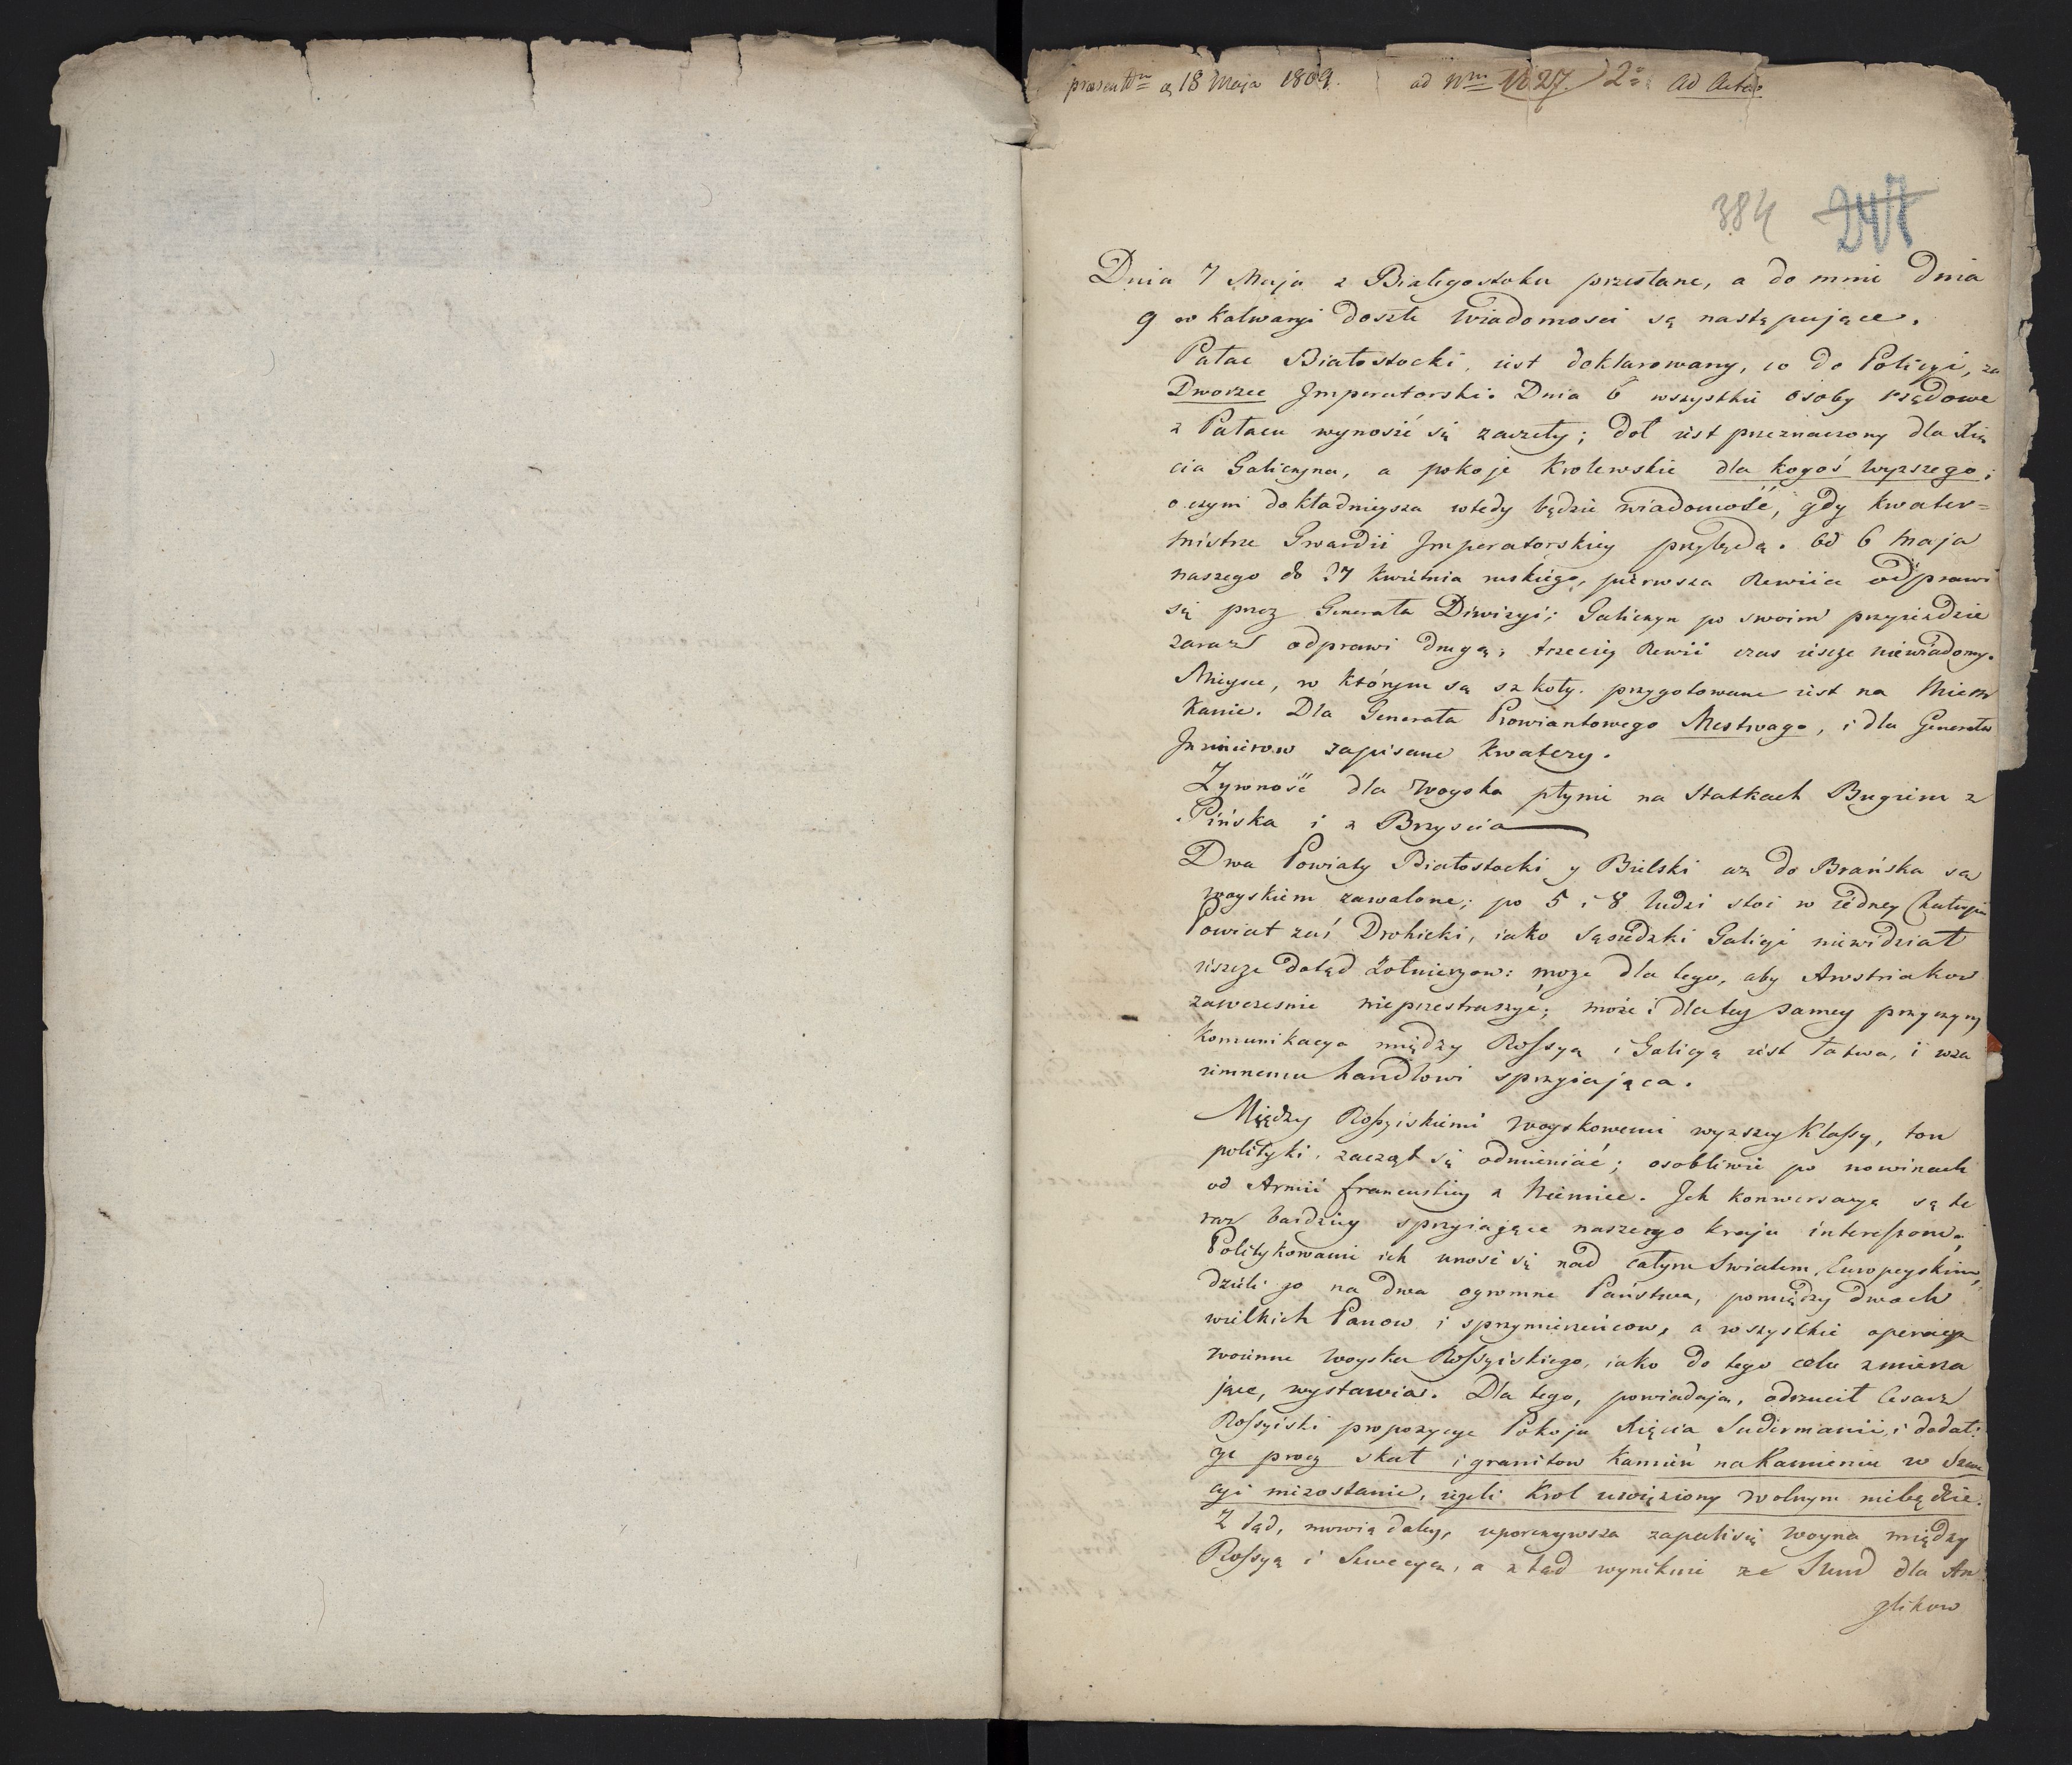 præsent: d 18 Maja 1809. ad Nrm 1227. 2o ad Acta
384 247
Dnia 7 Maja z Białegostoku przesłane, a do mnie dnia
9 w Kalwaryi doszłe Wiadomosci są następujące.
Pałac Białostocki, iest deklarowany, co do Policyi, za
Dworzec Imperatorski. Dnia 6 wszystkie osoby rządowe
z Pałacu wynosić się zaczęły; doł iest przeznaczony dla Xię
cia Galiczyna, a pokoje Krolewskie dla kogoś wyższego;
o czym dokładnieysza wtedy będzie wiadomość, gdy kwater=
mistrze Gwardii Imperatorskiey przybędą. Od 6 Maja
naszego do 27 kwietnia ruskiego, pierwsza Rewiia odprawi
się przez Generała Diwizyi; Galiczyn po swoim przyieździe
zaraz odprawi drugą; trzeciey Rewii czas iescze niewiadomy.
Mieysce, w którym są szkoły. przygotowane iest na Miesz
kanie. Dla Generała Prowiantowego Mestwago, i dla Generała
Inżinierow zapisane kwatery.
Żywność dla Woyska płynie na statkach Bugiem z
Pińska i z Brzyscia
Dwa Powiaty Białostocki y Bielski aż do Brańska są
woyskiem zawalone; po 5 i 8 ludzi stoi w iedney Chałupie
Powiat zaś Drohicki, iako sąsiedzki Galicyi niewidział
iescze dotąd żołnierzow: może dla tego, aby Awstriakow
zawczesnie nieprzestraszyć; może i dla tey samey przyczyny
Komunikacya między Rossyą i Galicyą iest łatwa, i wza
iemnemu handlowi sprzyiająca.
Między Rossyiskiemi woyskowemi wyższey Klassy, ton
polityki, zaczął się odmieniać; osobliwie po nowinach
od Armii francuskiey z Niemiec. Ich konwersacye są te
raz bardziey sprzyiające naszego kraju interessom;
Politykowanie ich unosi się nad całym Swiatem Europeyskim,
dzieli go na dwa ogromne Państwa, pomiędzy dwoch
wielkich Panow i sprzymierzeńcow, a wszystkie operacye
woienne woyska Rossyiskiego, iako do tego celu zmierza
jące, wystawia. Dla tego, powiadają, odrzucił Cesarz
Rossyiski propozycye Pokoju Xięcia Sudermanii, i dodał:
że procz skał i granitow Kamień na Kamieniu w Szwe
cyi niezostanie, ieżeli Krol uwięziony wolnym niebędzie.
Z tąd, mowią daley, uporczywsza zapali się woyna między
Rossyą i Szwecyą, a z tąd wyniknie że Sund dla An
glikow